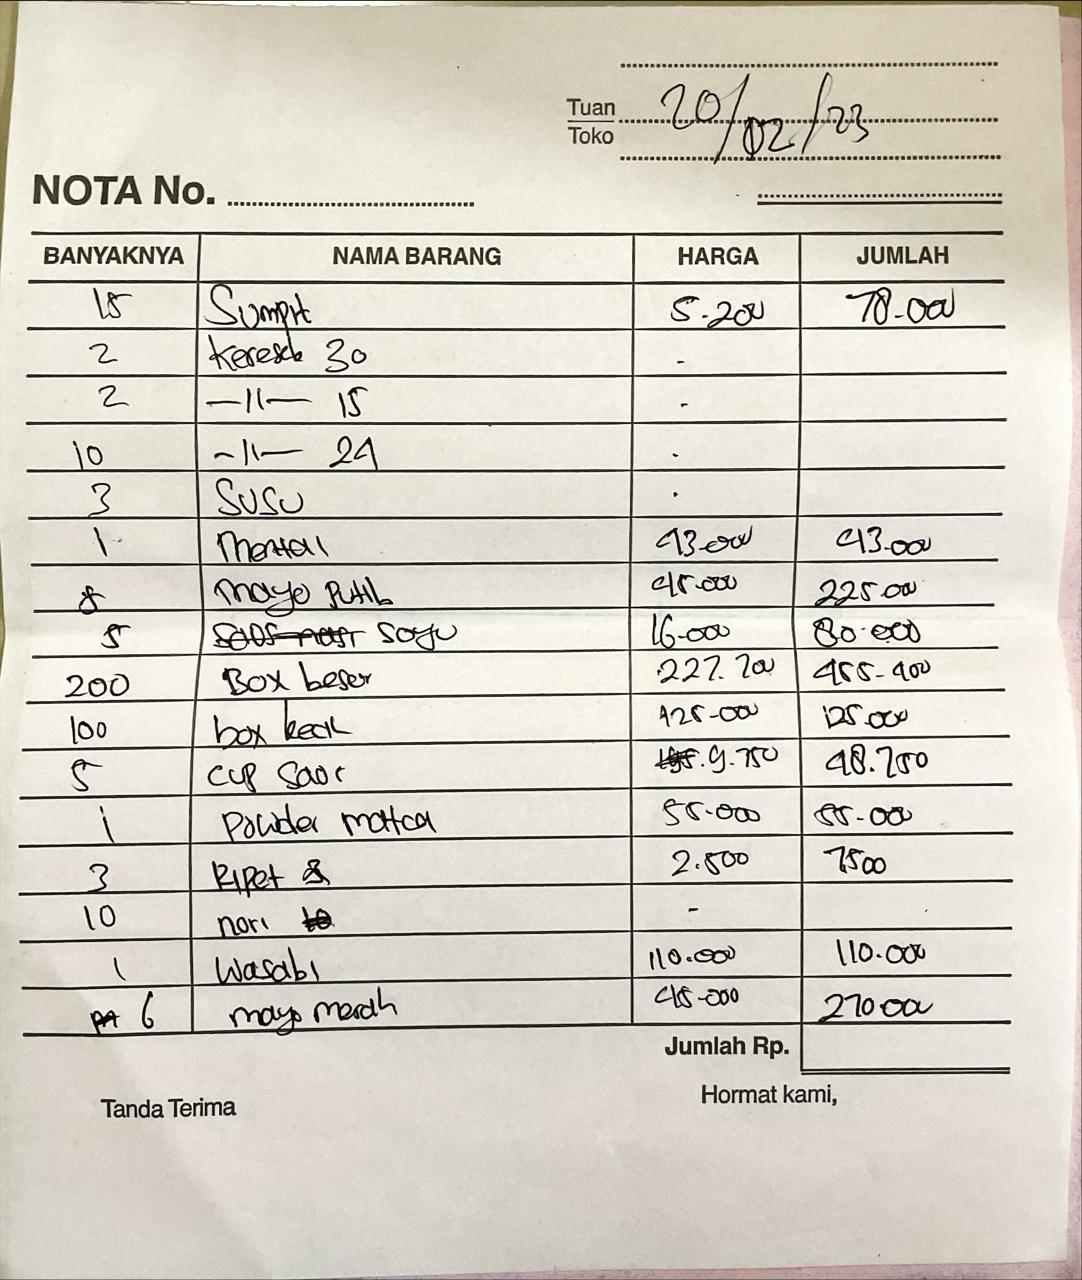 20/02/23
Tuan
Toko
NOTA No.
BANYAKNYA NAMA BARANG HARGA JUMLAH
15 Sumpit 5.200 78.000
2 Keresek 30 -
2 —11— 15 -
10 -11— 24 .
3 SUSU .
1 Mentai 43.000 43.000
5 mayo putih 45.000 225.000
5 soyu 16.000 80.000
200 Box besar 227.700 455.400
100 box kecil 125.000 125.000
5 cup saos 9.750 48.750
1 Powder mattca 55.000 55.000
3 Ripet 2.500 7500
10 nori -
1 Wasabi 110.000 110.000
6 mayo merah 45.000 270.000
Jumlah Rp.
Tanda Terima Hormat kami,